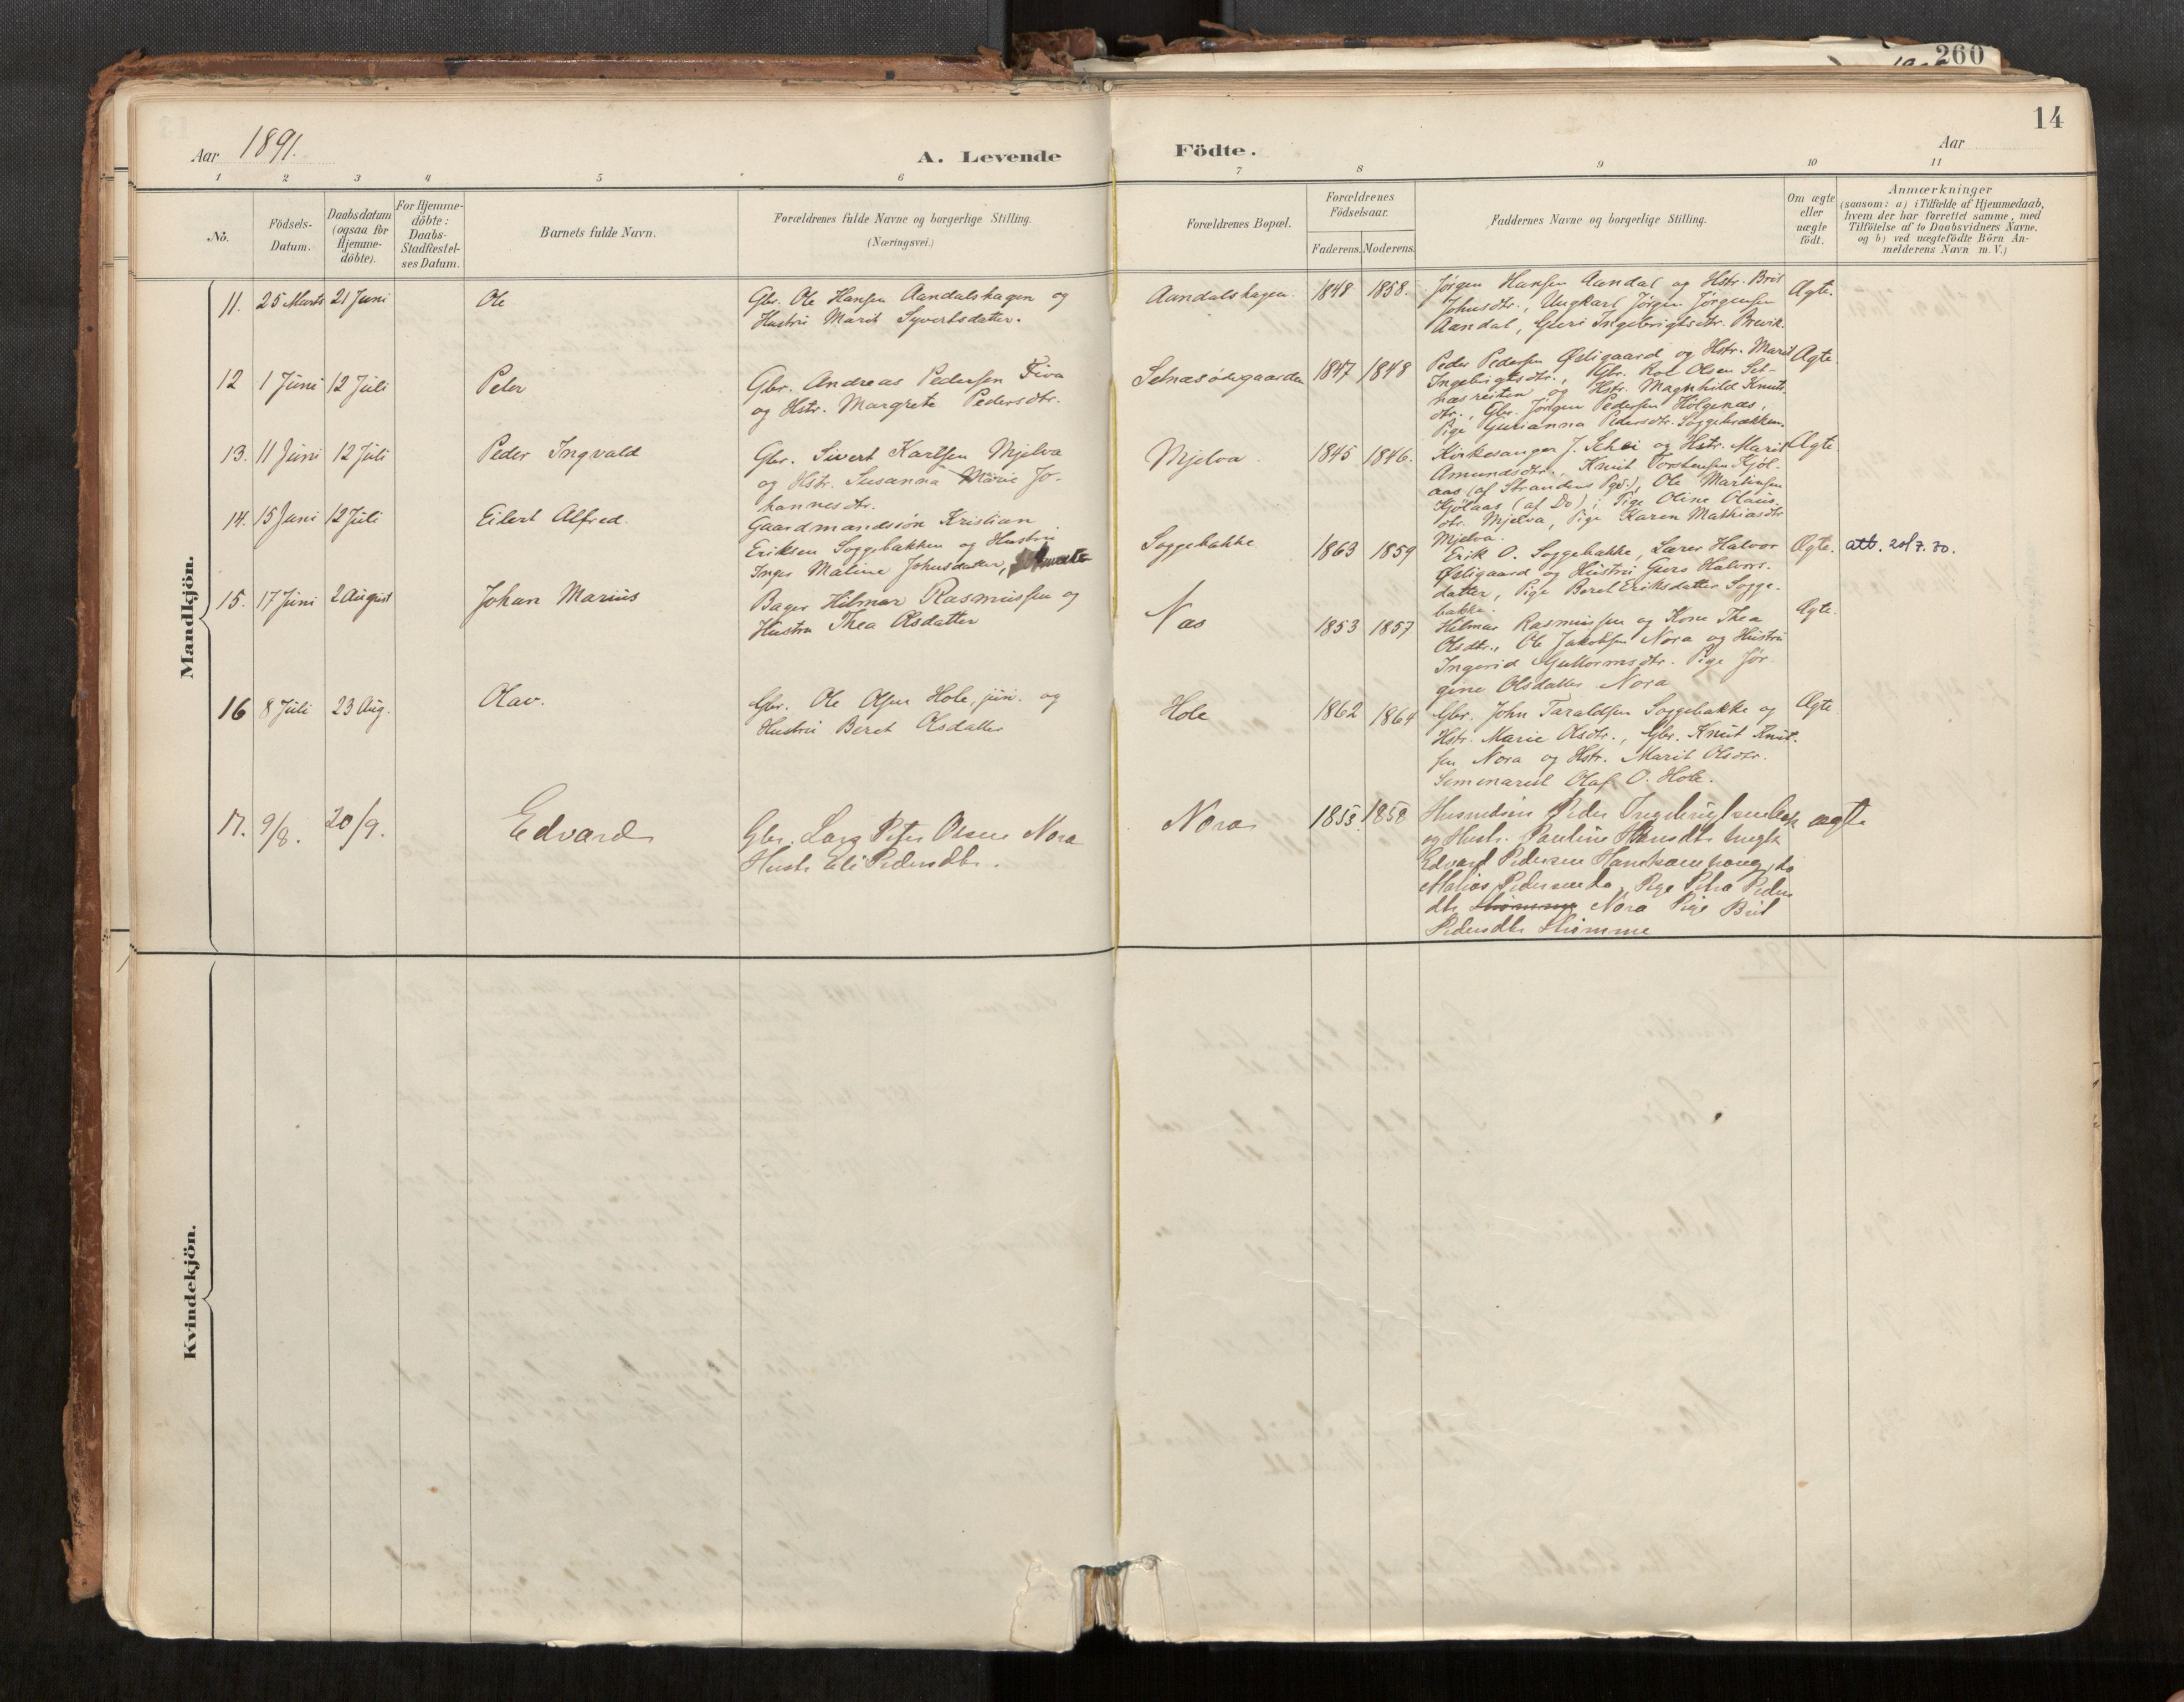 260
14
Aar 1891.
A. Levende
Födte.
Aar
1 2 3 4 5 6 7 8 9 10 11
No.
Födsels-
Datum.
Daabsdatum
(ogsaa for
Hjemme-
döbte).
For Hjemme-
döbte:
Daabs-
Stadfæstel-
ses Datum.
Barnets fulde Navn.
Forældrenes fulde Navne og borgerlige Stilling.
(Næringsvei.)
Forældrenes Bopæl.
Forældrenes
Födselsaar.
Faderens. Moderens.
Faddernes Navne og borgerlige Stilling.
Om ægte
eller
uægte
födt.
Anmærkninger
(saasom: a) i Tilfælde af Hjemmedaab,
hvem der har forrettet samme, med
Tilföielse af to Daabsvidners Navne,
og b) ved uægtefödte Börn An-
melderens Navn m. V.)
Mandkjön.
11. 25 Marts 21 Juni
Ole
Gbr. Ole Hansen Aandalshagen og
Hustru Marit Syvertsdatter.
Aandalshagen. 1848 1858.
Jørgen Hansen Aandal og Hstr. Brit
Johnsdtr., Ungkarl Jørgen Jørgensen
Aandal, Guri Ingebrigtsdtr. Brevik.
Ægte.
12 1 Juni 12 Juli
Peter
Gbr. Andreas Pedersen Fiva
og Hstr. Margrete Pedersdtr.
Setnæsødegaarden 1847 1848
Peder Pedersen Øvligaard og Hstr. Marit
Ingebrigtsdtr., Gbr. Kol Olsen Set-
næsreiten og Hstr. Magnhild Knuts-
dtr., Gbr. Jørgen Pedersen Holgenæs,
Pige Gurianna Pedersdtr. Soggebrækken.
Ægte.
13. 11 Juni 12 Juli
Peder Ingvald
Gbr. Sivert Karlsen Mjelva
og Hstr. Susanna Marie Jo-
hannesdtr.
Mjelva 1845 1846.
Kirkesanger J. Schei og Hstr. Marit
Amundsdtr., Knut Torstensen Kjöl-
aas (af Strandens Pgd.), Ole Martinsen
Kjölaas (af Do), Pige Oline Olaus-
dtr. Mjelva, Pige Karen Mathiasdtr
Mjelva.
Ægte.
14. 15 Juni 12 Juli
Eilert Alfred.
Gaardmandssön Kristian
Eriksen Soggebakken og Hustru
Inger Maline Johnsdatter,
Soggebakke 1863 1859
Erik O. Soggebakke, Lærer Halvor
Øvligaard og Hustru Guro Halvors-
datter, Pige Beret Eriksdatter Sogge-
bakke.
Ægte. att. 20/7. 30.
15. 17 Juni 2 August
Johan Marius
Bager Hilmar Rasmussen og
Hustru Thea Olsdatter
Næs 1853 1857
Hilmar Rasmussen og Kone Thea
Olsdtr., Ole Jakobsen Nora og Hustru
Ingerid Guttormsdtr. Pige Jör-
gine Olsdatter Nora
Ægte.
16 8 Juli 23 Aug.
Olav.
Gbr. Ole Olsen Hole, jun. og
Hustru Beret Olsdatter
Hole 1862 1864
Gbr. John Taraldsen Soggebakke og
Hstr. Marie Olsdtr., Gbr. Knut Knut-
sen Nora og Hstr. Marit Olsdtr.
Seminarist Olaf O. Hole.
Ægte
17. 9/8. 20/9.
Edvard
Gbr. Lars Peter Olsen Nora
Hustr. Eli Pedersdtr.
Nora 1855. 1858
Husmdsøn Peder Ingebrigtsen
og Hustr. Pauline Hansdtr Ungk
Edvard Pedersen
Matias Pedersen do, Pige Petra Peders
dtr Nora Pige Brit
Pedersdtr Strømme
ægte
Kvindekjön.